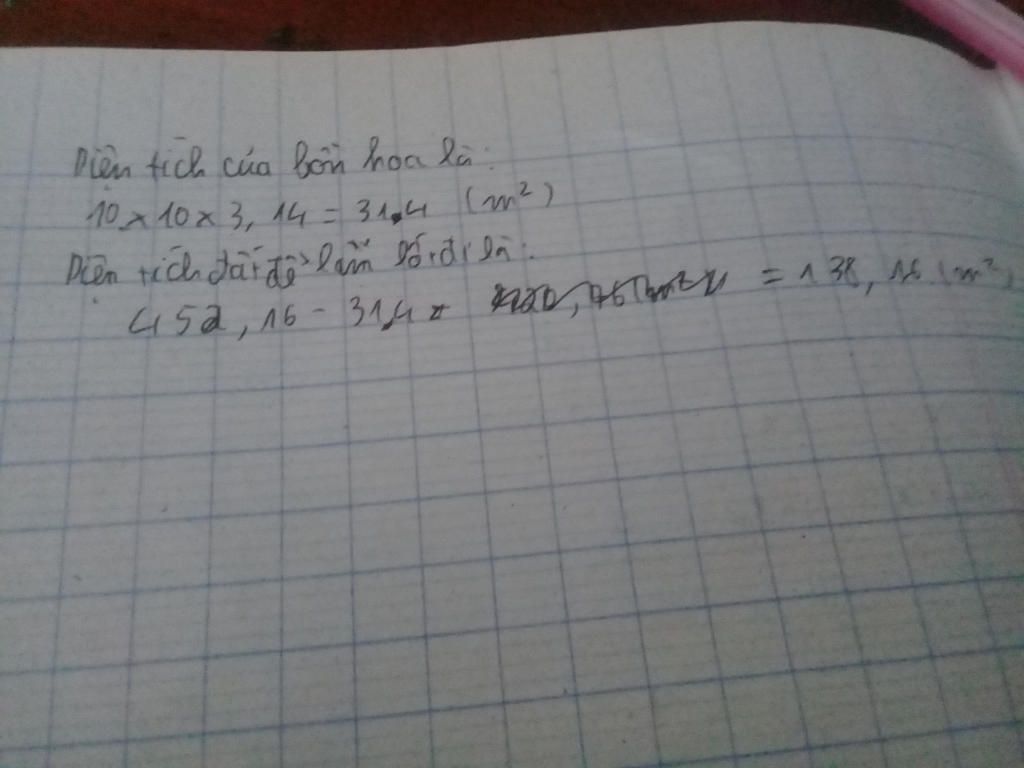 Diện tích của bồn hoa là:
10 x 10 x 3,14 = 314 (m²)
Diện tích đất để làm lối đi là:
452,16 - 314 = 138,16 (m²)